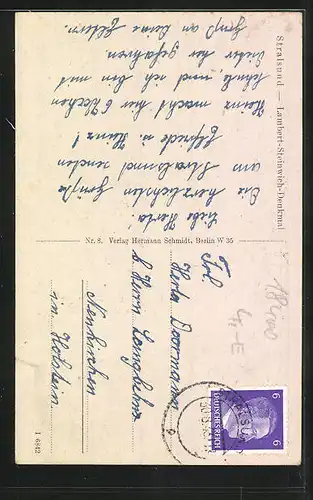 Stralsund — Lambert-Steinwich-Denkmal
Liebe Herta!
Die herzlichsten Grüße
aus Stralsund senden
Elfriede u. Heinz!
Heinz macht hier 6 Wochen
und ich bin mit
hierher gefahren.
Gruß an Deine Eltern.
Nr. 8. Verlag Hermann Schmidt, Berlin W 35
Frl.
Herta
b. Herrn
Neukirchen
in Holstein.
I 6842
6
DEUTSCHES REICH
6